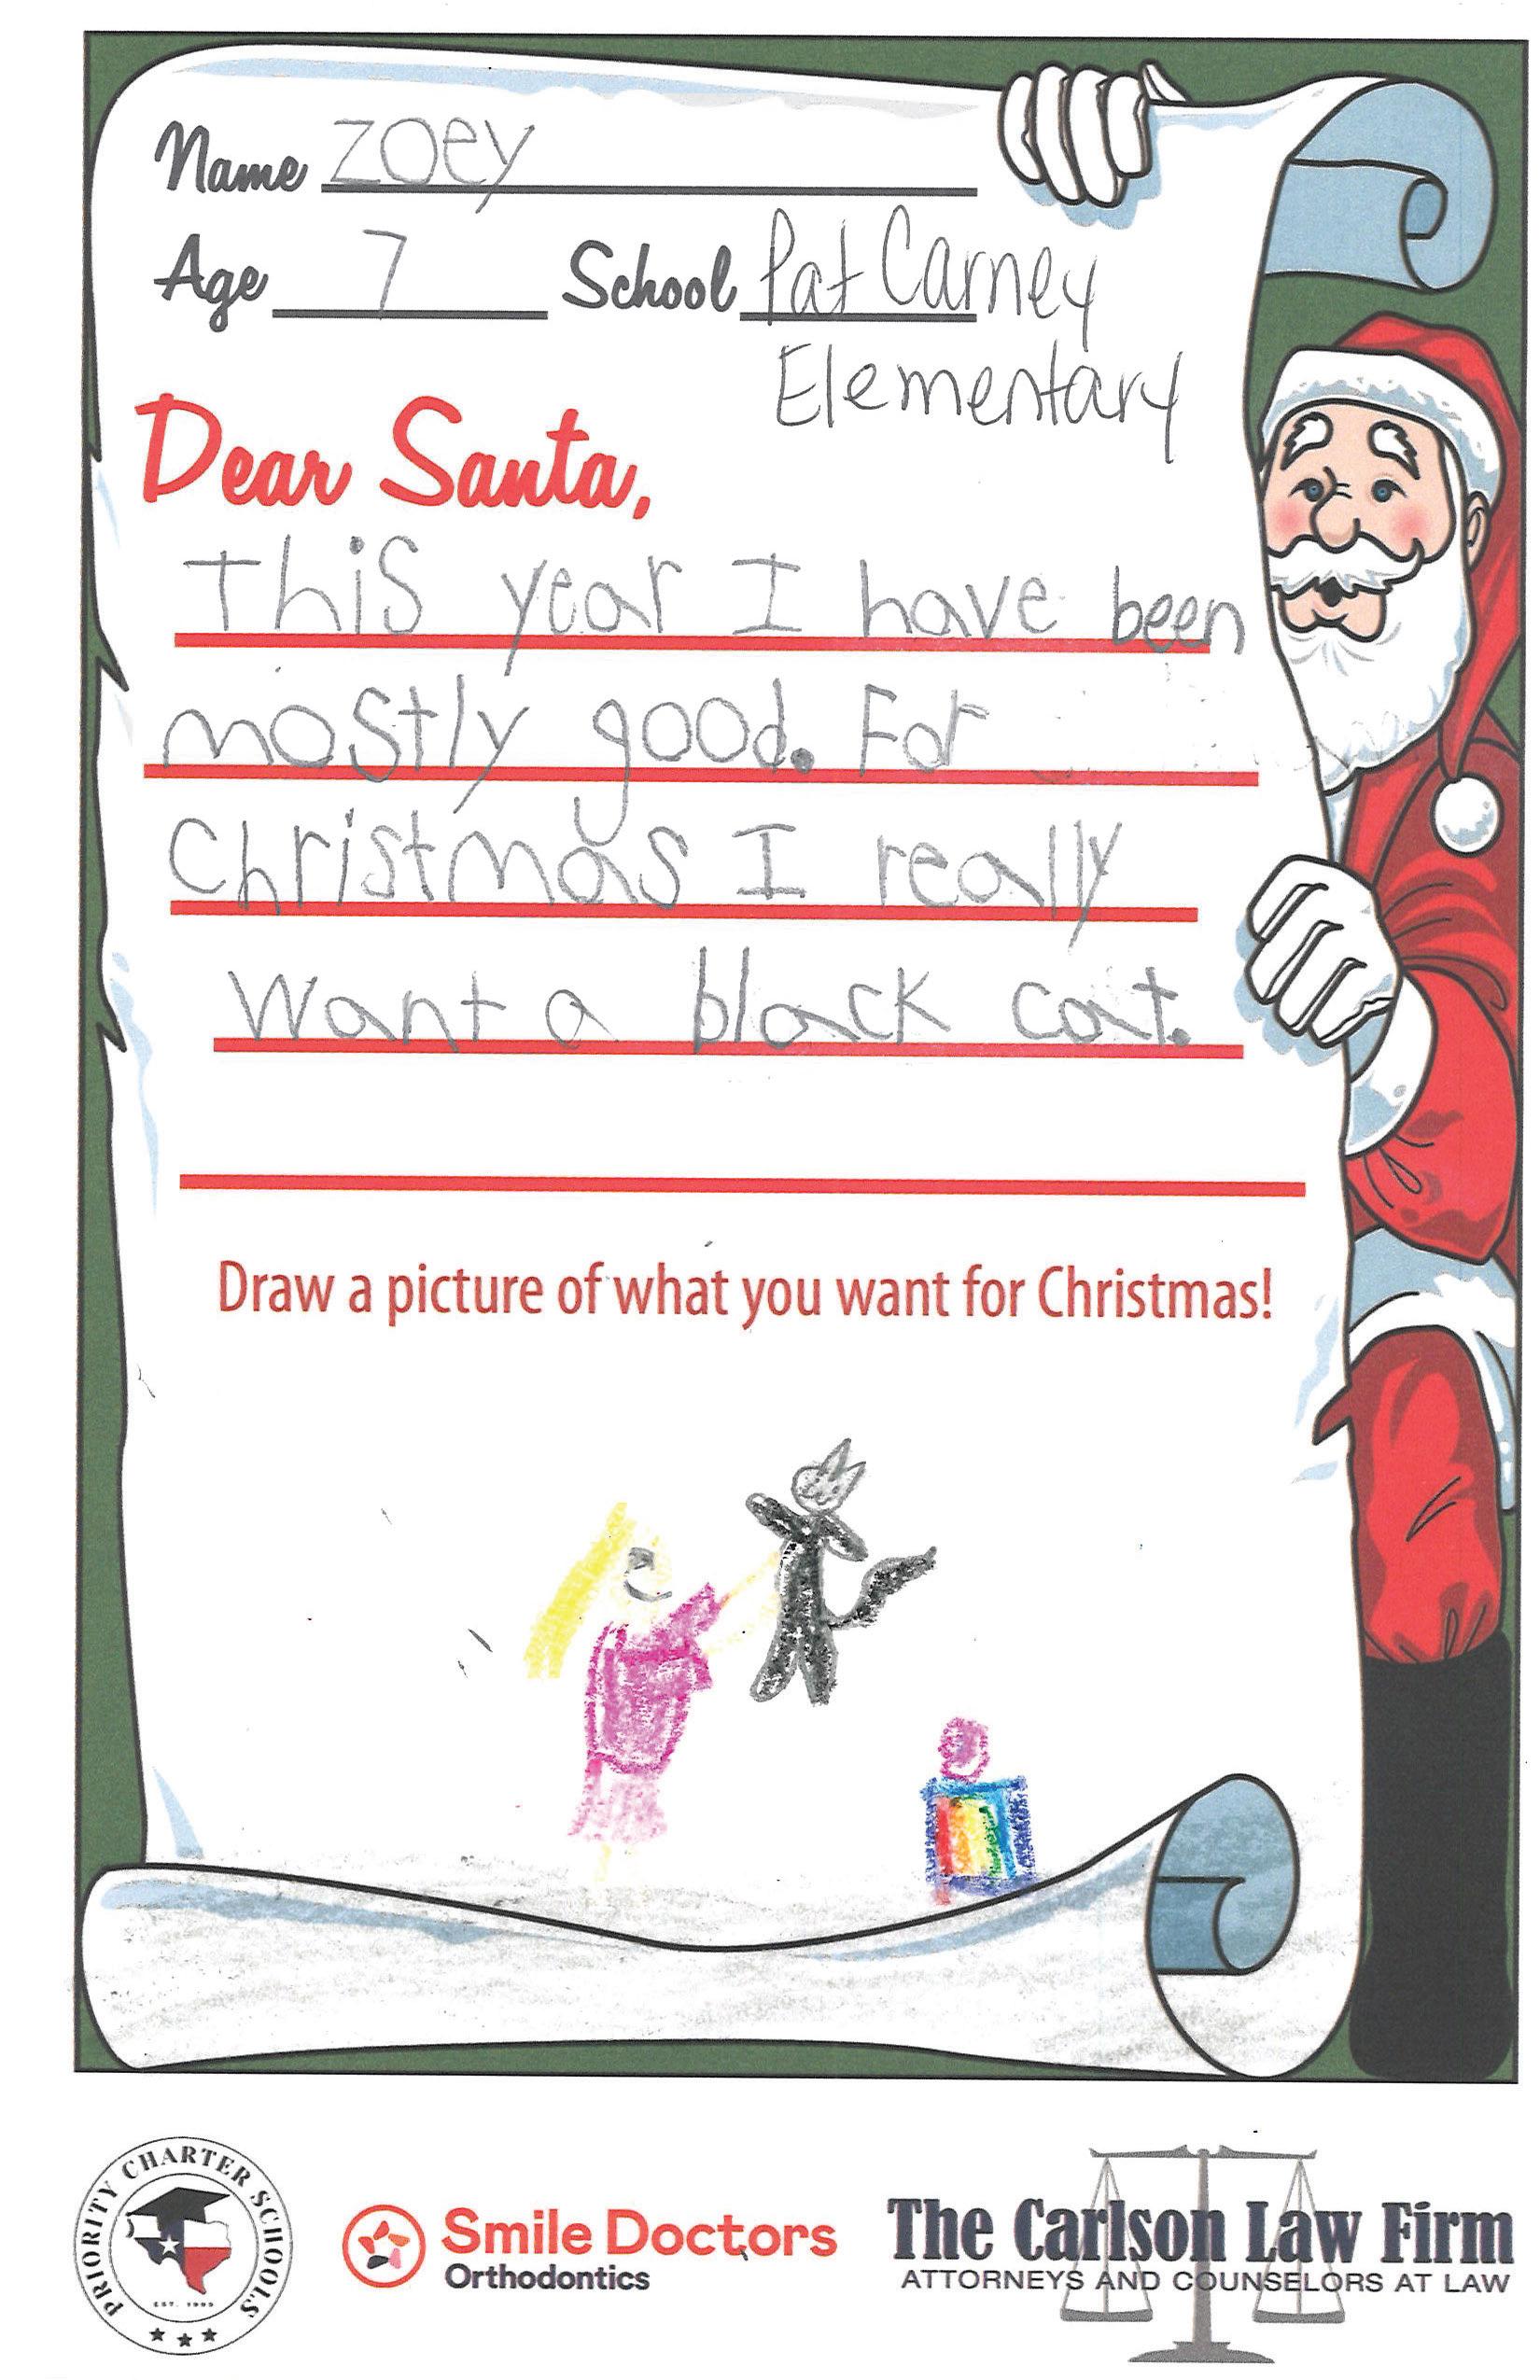 Name Zoey
Age 7 School Pat Carney
Elementary
Dear Santa,
This year I have been
mostly good. For
Christmas I really
want a black cat.
Draw a picture of what you want for Christmas!
PRIORITY CHARTER SCHOOLS
EST. 1999
Smile Doctors
Orthodontics
The Carlson Law Firm
ATTORNEYS AND COUNSELORS AT LAW